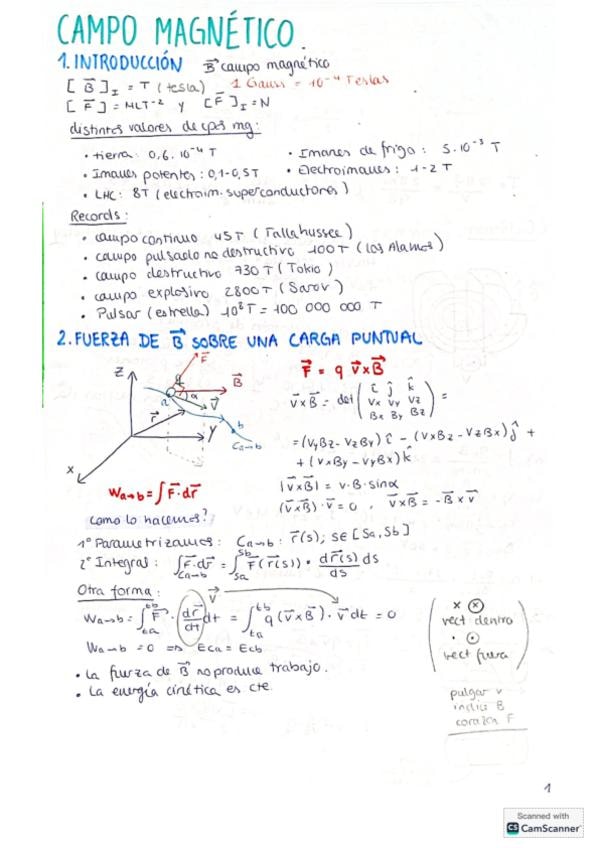 CAMPO MAGNÉTICO.
1. INTRODUCCIÓN B⃗ campo magnético
[B⃗]I = T (tesla) 1 Gauss = 10⁻⁴ Teslas
[F⃗] = MLT⁻² y [F⃗]I = N
distintos valores de cpos mg:
· tierra: 0,6·10⁻⁴ T · Imanes de frigo: 5·10⁻³ T
· Imanes potentes: 0,1-0,5T · Electroimanes: 1-2 T
· LHC: 8T (electroim. superconductores)
Records:
· campo continuo 45T (Tallahussee)
· campo pulsado no destructivo 100T (Los Alamos)
· campo destructivo 730T (Tokio)
· campo explosivo 2800T (Sarov)
· Pulsar (estrella) 10⁸T = 100 000 000 T
2. FUERZA DE B⃗ SOBRE UNA CARGA PUNTUAL
Z F⃗ q B⃗ α V⃗ a r⃗ b Ca→b Y X
F⃗ = q v⃗xB⃗
v⃗xB⃗ = det ( î ĵ k̂
Vx Vy Vz
Bx By Bz ) =
= (VyBz - VzBy) î - (VxBz - VzBx) ĵ +
+ (VxBy - VyBx) k̂
Wa→b = ∫F⃗·dr⃗
|v⃗xB⃗| = v·B·sinα
(v⃗xB⃗)·v⃗ = 0 , v⃗xB⃗ = -B⃗ x v⃗
como lo hacemos?
1º Parametrizamos: Ca→b : r⃗(s); s∈[Sa,Sb]
2º Integral: ∫Ca→b F⃗·dr⃗ = ∫Sa^Sb F⃗(r⃗(s)) · dr⃗(s)/ds ds
Otra forma: V⃗
Wa→b = ∫ta^tb F⃗ · dr⃗/dt dt = ∫ta^tb q(v⃗xB⃗)·v⃗dt = 0
Wa→b = 0 => Eca = Ecb
· La fuerza de B⃗ no produce trabajo.
· La energía cinética es cte.
x ⊗
vect dentro
· ⊙
vect fuera
pulgar v
indice B
corazon F
1
Scanned with
CS CamScanner